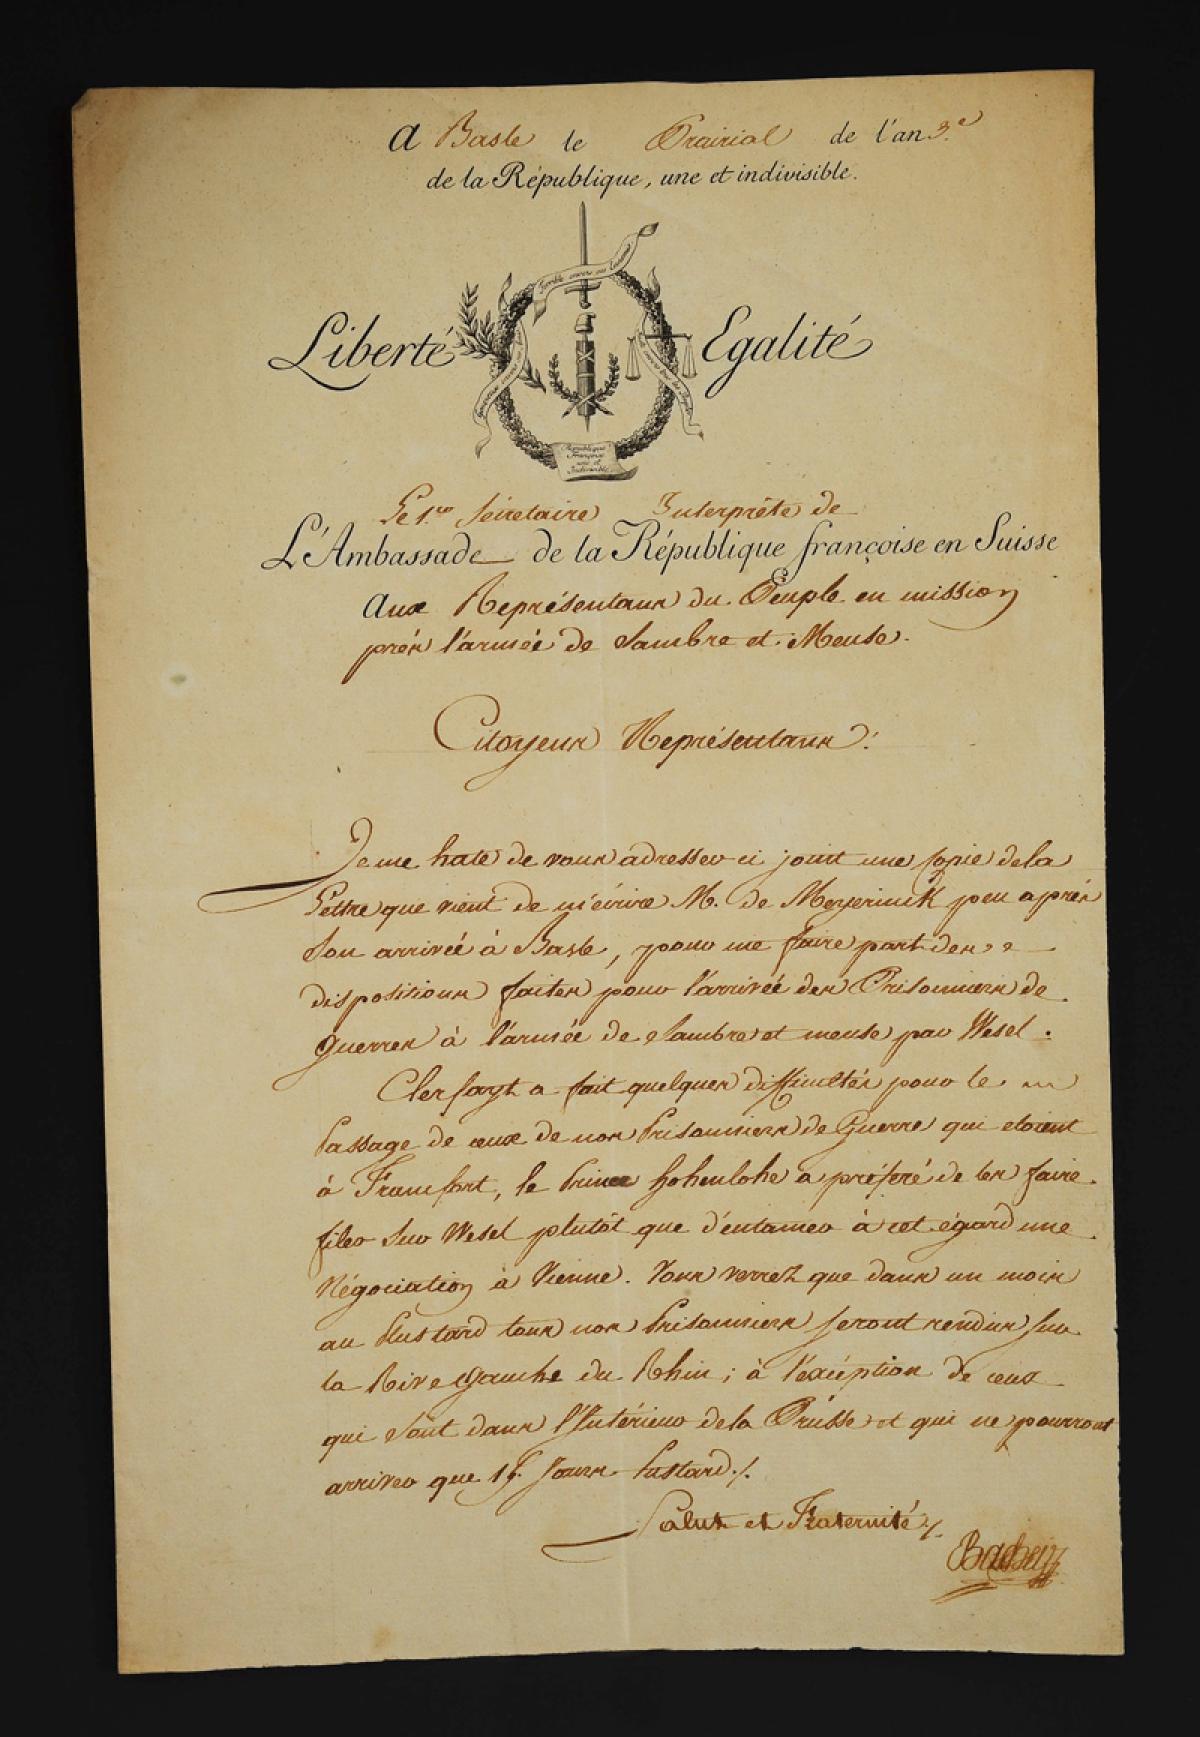 A Basle le Prairial de l'an 3.e
de la République, une et indivisible.
Liberté Egalité
République
Françoise
une et
Indivisible
Le 1.er Sécretaire Interprête de
L'Ambassade de la République françoise en Suisse
Aux Représentans du Peuple en mission
près l'armée de Sambre et Meuse.
Citoyens Représentans!
Je me hate de vous adresser ci joint une copie de la
Lettre que vient de m'écrire M. de Meyerinck peu après
Son arrivée à Basle, pour me faire part des
dispositions faites pour l'arrivée des Prisonniers de
guerres à l'armée de Sambre et meuse par Wesel.
Clerfayt a fait quelques difficultés pour le
Passage de ceux de nos Prisonniers de Guerre qui etoient
à Francfort, le Prince hohenlohe a préferé de les faire
filer sur Wesel plutôt que d'entamer à cet égard une
Négociation à Vienne. Vous verrez que dans un mois
au Plus tard tous nos Prisonniers seront rendus sur
la Rive Gauche du Rhin; à l'excéption de ceux
qui Sont dans l'Intérieur de la Prusse et qui ne pourront
arriver que 15. Jours Plustard./.
Salut et Fraternité./.
Bacher